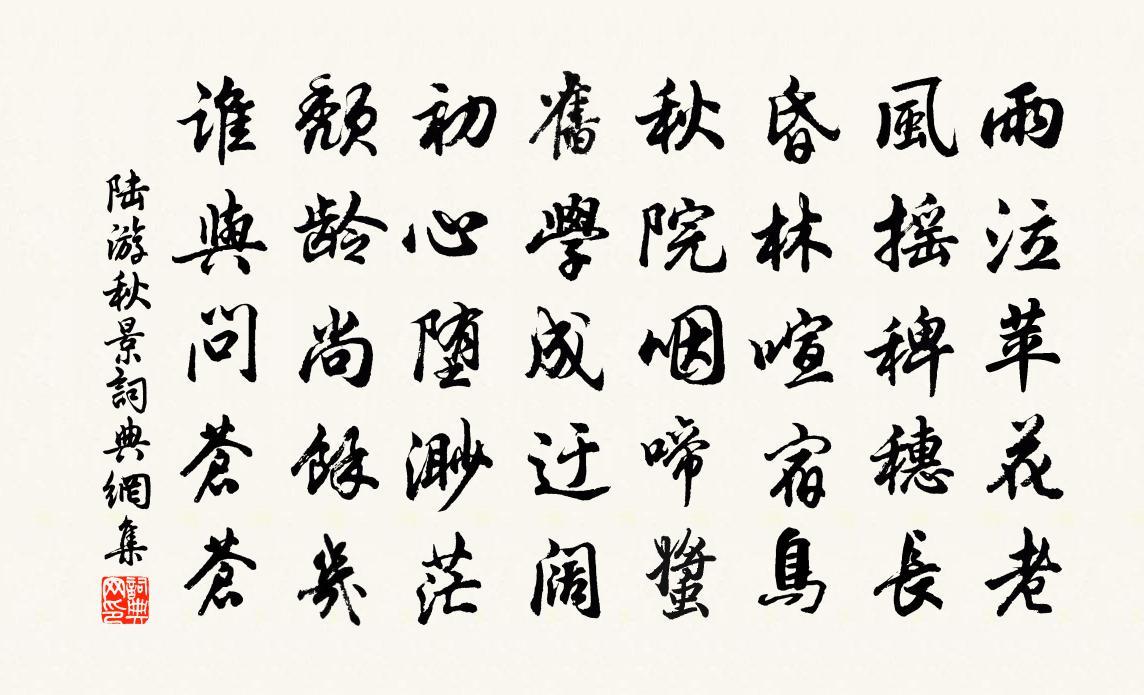 雨泣苹花老
風摇稗穗長
昏林喧宿鳥
秋院咽啼螿
舊學成迂阔
初心堕渺茫
頹龄尚餘幾
誰與問蒼蒼
陆游秋景詞典網集
詞典网印